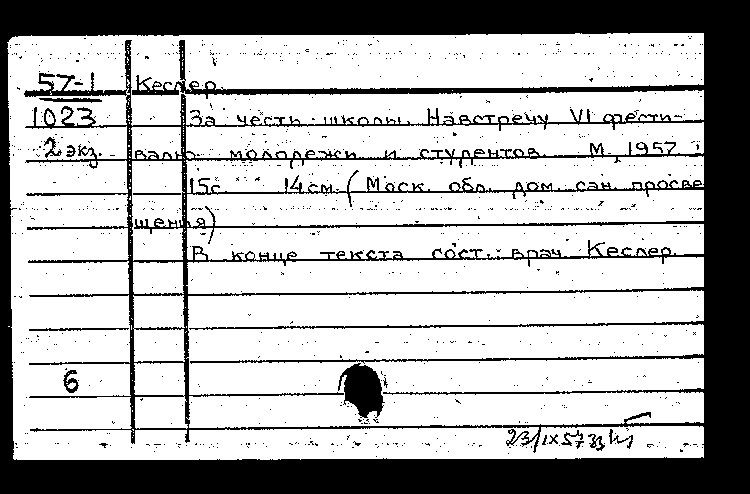 57-1 Кеслер
1023 За честь школы. Навстречу VI фести-
2 экз. валю молодежи и студентов. М., 1957
15с. 14см. (Моск. обл. дом. сан. просве
щения)
В конце текста сост.: врач Кеслер.
6
23/IX 57